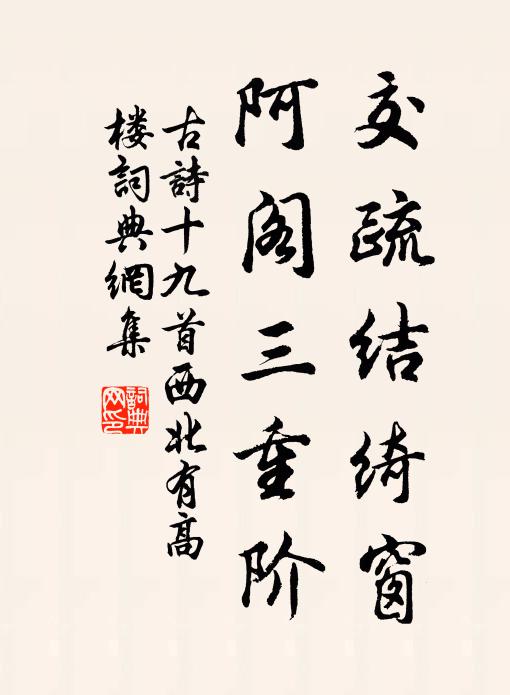 交疏结绮窗
阿阁三重阶
古詩十九首西北有高
楼詞典網集
詞典网印